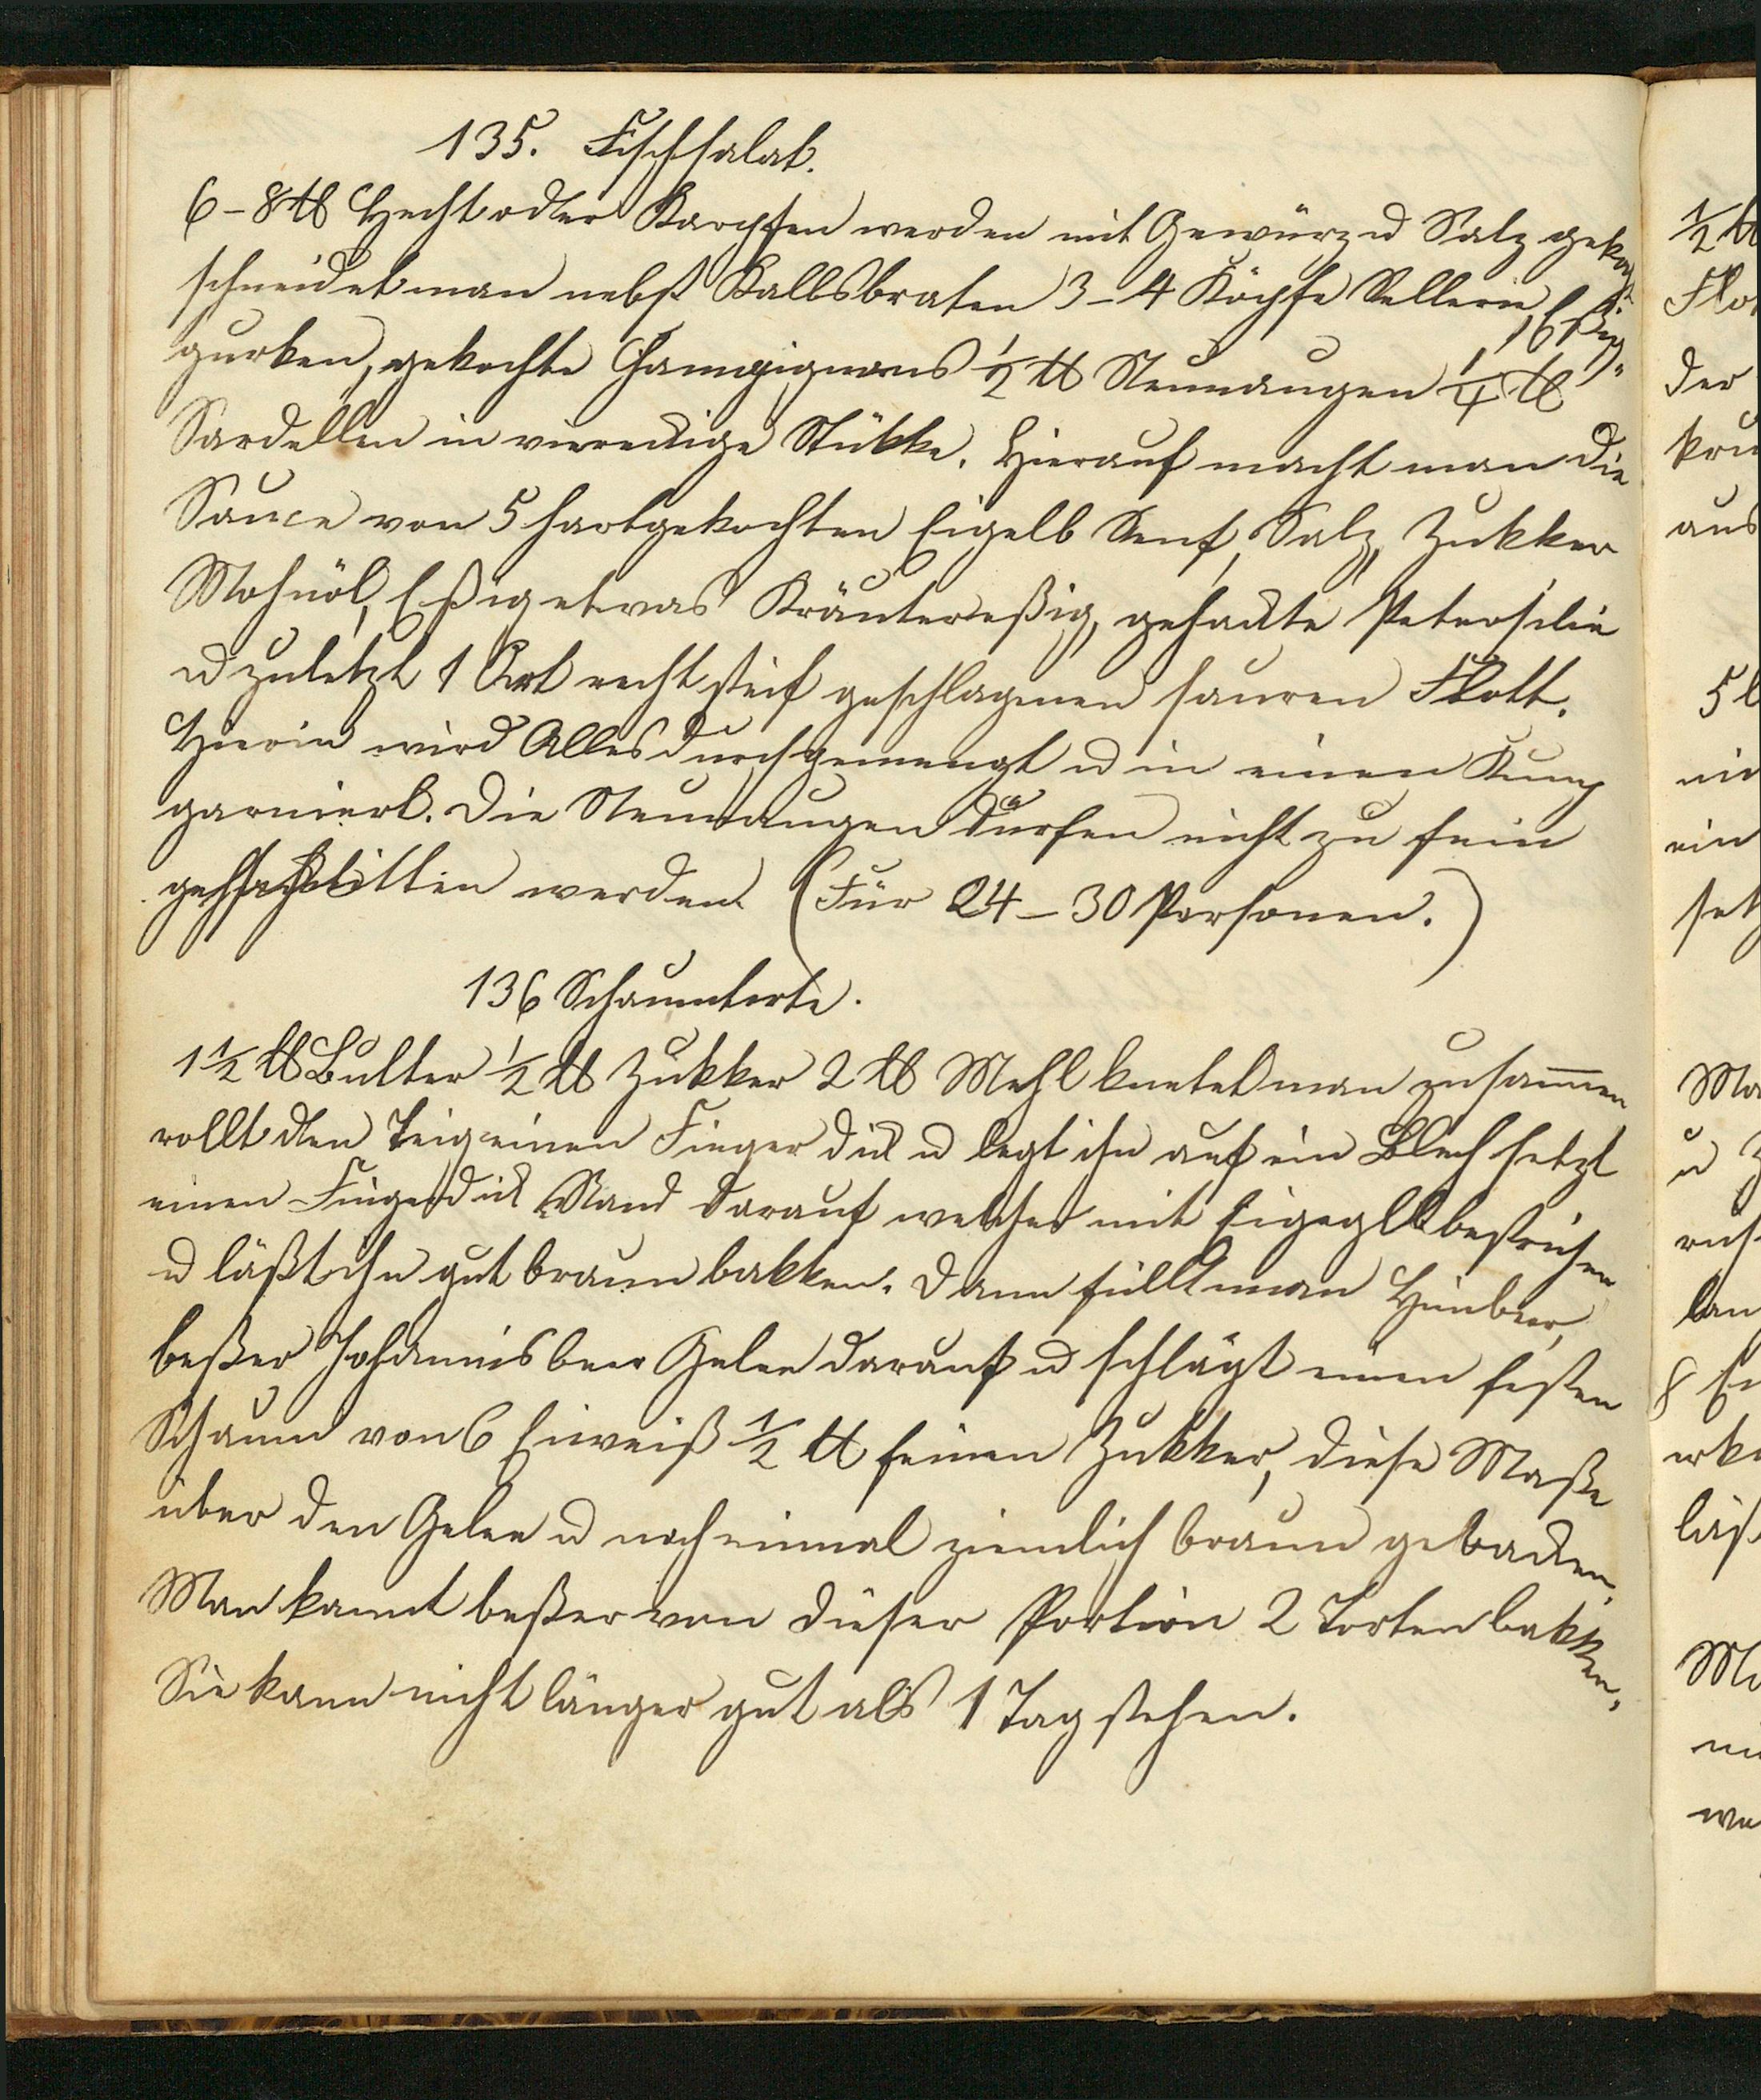 135. Fischsalat.
6-8 ℔ Hecht oder Karpfen werden mit Gewürz u Salz gekocht
schneidet man nebst Kalbsbraten 3-4 Köpfe Sellerie, Eßig-
gurken, gekochte Champignons ½ ℔ Neunaugen ¼ ℔
Sardellen in viereckige Stükke. Hierauf macht man die
Sauce von 5 hartgekochten Eigelb Senf, Salz, Zukker
Mohnöl, Eßig etwas Kräutereßig, gehackte Petersilie
u zuletzt 1 Ort recht steif geschlagenen sauren Flott.
Hierin wird Alles durchgemengt u in einen Kump
garniert. Die Neunaugen dürfen nicht zu fein
geschnitten werden. (Für 24-30 Personen.)
136 Schaumtorte.
1½ ℔ Butter ½ ℔ Zukker 2 ℔ Mehl knetet man zusam̅en
rollt den Teig einen Finger dick u legt ihn auf ein Blech setzt
einen Fingerdick Rand darauf welcher mit Eigelb bestrichen
u läßt ihn gut braun bakken. Dann füllt man Himbeer,
beßer Johannisbeer Gelee darauf u schlägt einen festen
Schaum von 6 Eiweiß ½ ℔ feinen Zukker, diese Maße
über den Gelee u noch einmal ziemlich braun gebacken.
Man kannt beßer von dieser Portion 2 Torten bakken.
Sie kann nicht länger gut als 1 Tag stehen.
½ ℔
der
aus
ein